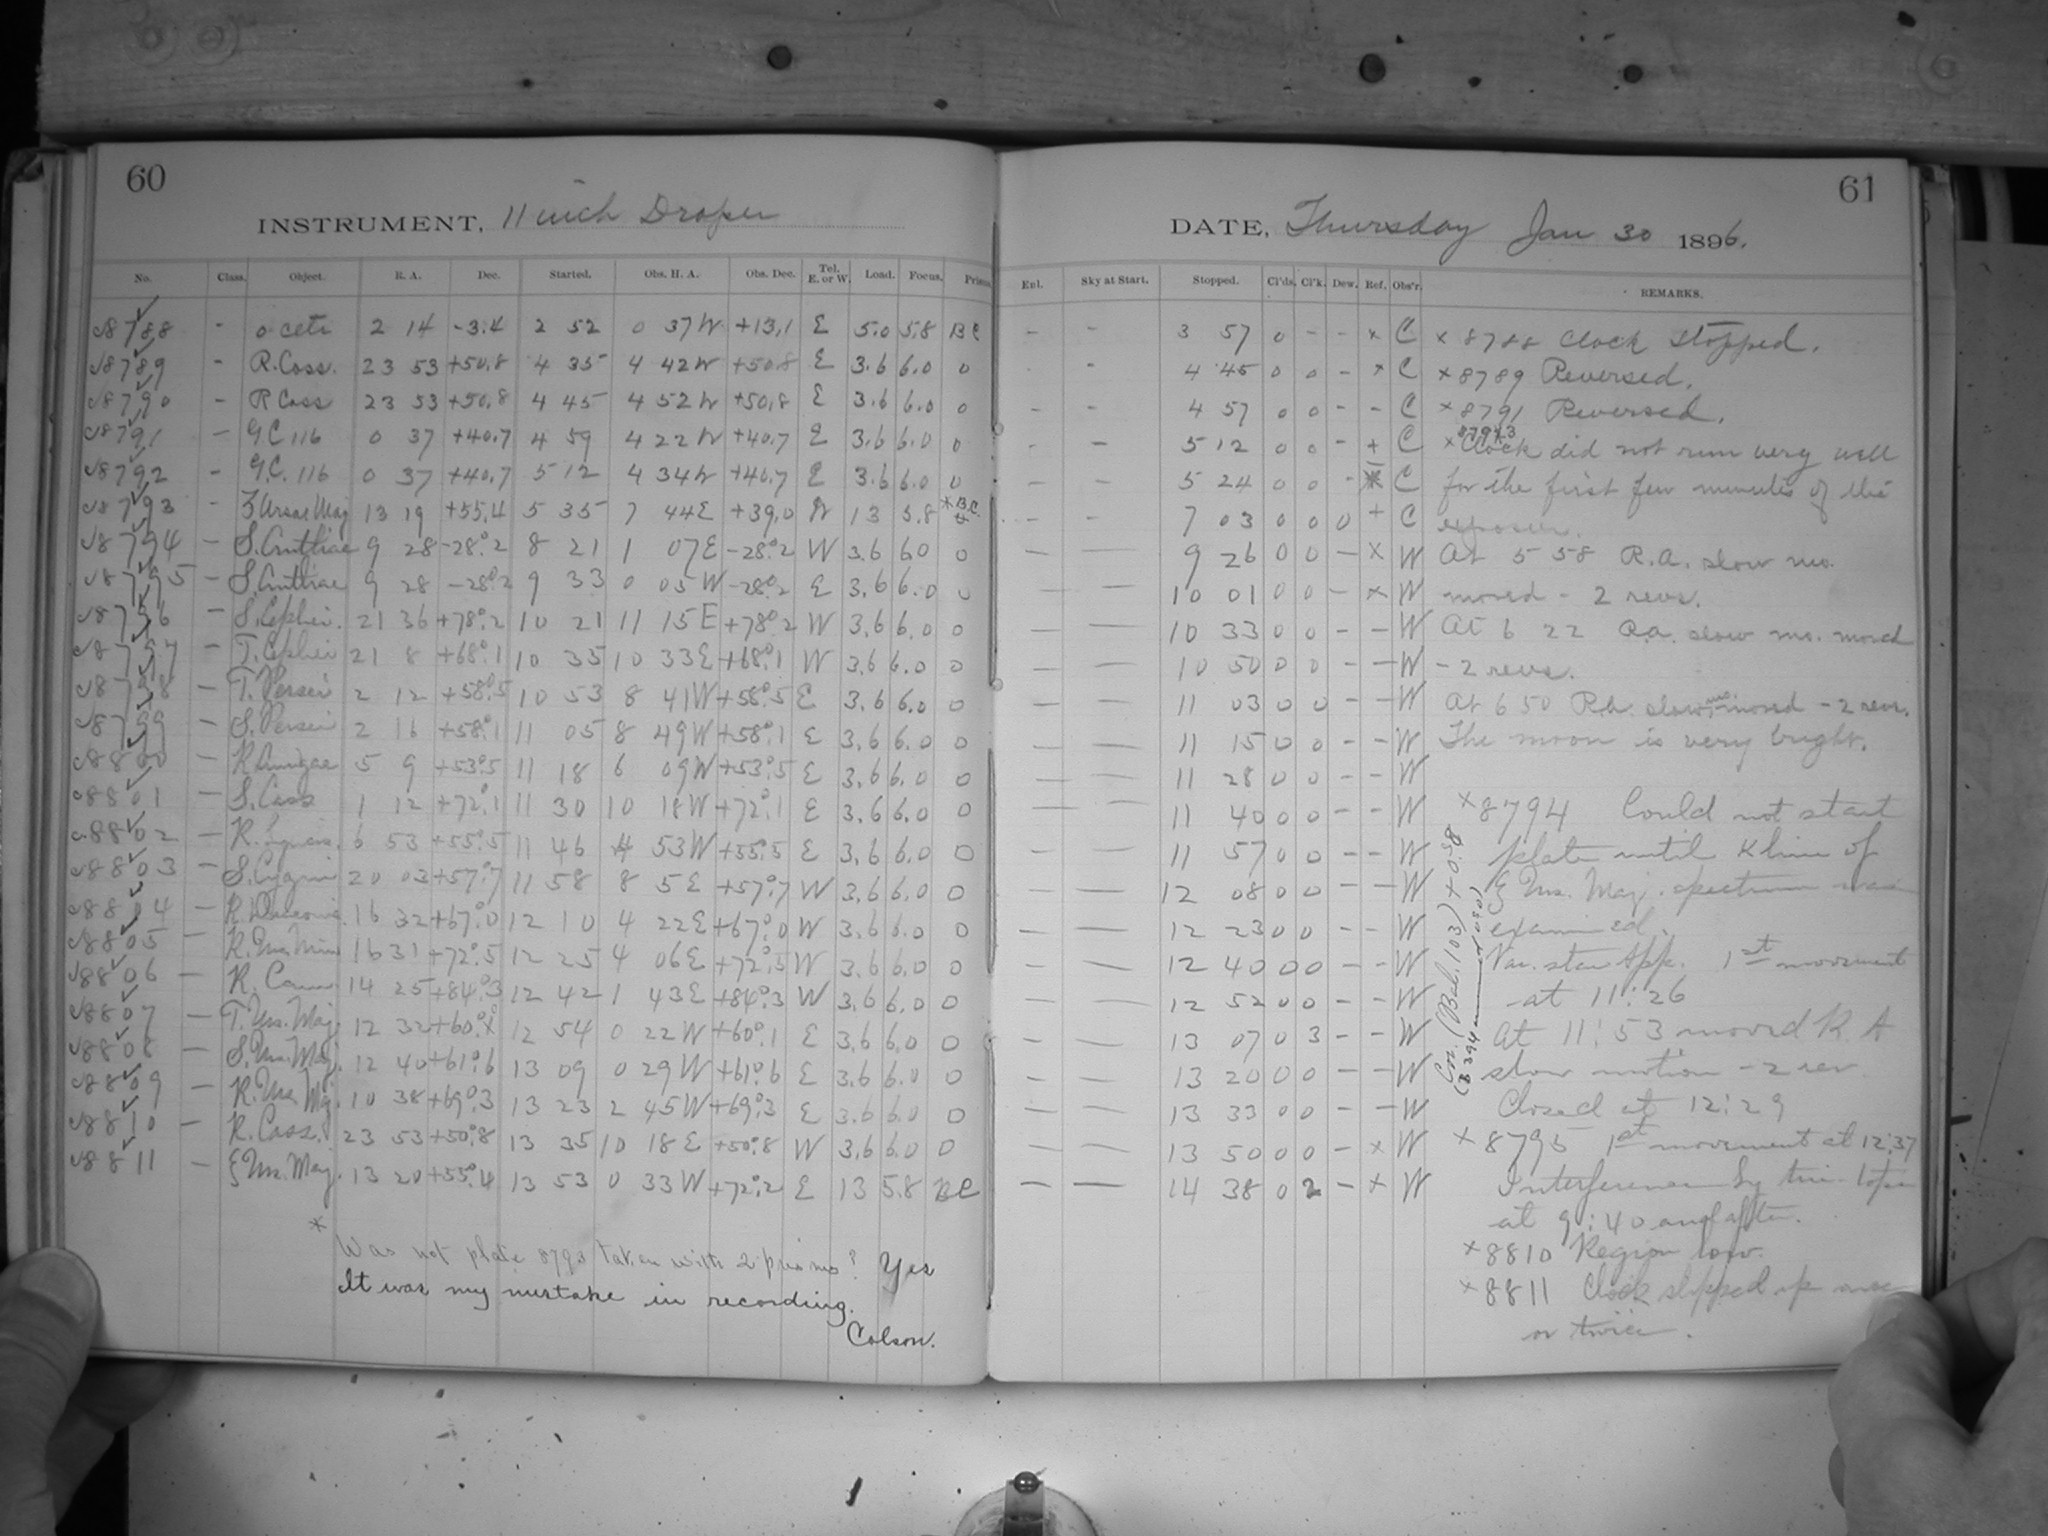 60
INSTRUMENT, 11 inch Draper
No. Class. Object. R. A. Dec. Started. Obs. H. A. Obs. Dec. Tel. E. or W. Load. Focus. Prisms
c8788 - o ceti 2 14 -3.4 2 52 0 37W +13.1 E 5.0 5.8 BC
c8789 - R.Cass. 23 53 +50.8 4 35 4 42W +50.8 E 3.6 6.0 0
c8790 - R Cass 23 53 +50.8 4 45 4 52W +50.8 E 3.6 6.0 0
c8791 - G.C. 116 0 37 +40.7 4 59 4 22W +40.7 E 3.6 6.0 0
c8792 - G.C. 116 0 37 +40.7 5 12 4 34W +40.7 E 3.6 6.0 0
c8793 - ζ Ursae Maj 13 19 +55.4 5 35 7 44E +39.0 W 13 5.8 *BC
c8794 - S. Antliae 9 28 -28°.2 8 21 1 07E -28°.2 W 3.6 6.0 0
c8795 - S. Antliae 9 28 -28°.2 9 33 0 05W -28°.2 E 3.6 6.0 0
c8796 - S. Cephei. 21 36 +78°.2 10 21 11 15E +78°.2 W 3.6 6.0 0
c8797 - T. Cephei 21 8 +68°.1 10 35 10 33E +68°.1 W 3.6 6.0 0
c8798 - T. Persei 2 12 +58°.5 10 53 8 41W +58°.5 E 3.6 6.0 0
c8799 - S. Persei 2 16 +58°.1 11 05 8 49W +58°.1 E 3.6 6.0 0
c8800 - R Aurigae 5 9 +53°.5 11 18 6 09W +53°.5 E 3.6 6.0 0
c8801 - S. Cass 1 12 +72°.1 11 30 10 18W +72°.1 E 3.6 6.0 0
c8802 - R. Lyncis. 6 53 +55°.5 11 46 4 53W +55°.5 E 3.6 6.0 0
c8803 - S. Cygni 20 03 +57°.7 11 58 8 5E +57°.7 W 3.6 6.0 0
c8804 - R. Draconis. 16 32 +67°.0 12 10 4 22E +67°.0 W 3.6 6.0 0
c8805 - R. Urs. Min 16 31 +72°.5 12 25 4 06E +72°.5 W 3.6 6.0 0
c8806 - R. Cam 14 25 +84°.3 12 42 1 43E +84°.3 W 3.6 6.0 0
c8807 - T. Urs. Maj. 12 32 +60° 12 54 0 22W +60°.1 E 3.6 6.0 0
c8808 - S. Urs. Maj. 12 40 +61°.6 13 09 0 29W +61°.6 E 3.6 6.0 0
c8809 - R. Urs. Maj. 10 38 +69°.3 13 23 2 45W +69°.3 E 3.6 6.0 0
c8810 - R. Cass. 23 53 +50°.8 13 35 10 18E +50°.8 W 3.6 6.0 0
c8811 - ξ Urs. Maj. 13 20 +55°.4 13 53 0 33W +72°.2 E 13 5.8 BC
*
Was not plate 8793 taken with 2 prisms? Yes
It was my mistake in recording.
Colson.
61
DATE, Thursday Jan 30 1896.
Enl. Sky at Start. Stopped. Cl'ds. Cl'k. Dew. Ref. Obs'r. REMARKS.
- - 3 57 0 - - x C x 8788 Clock stopped.
- 4 45 0 0 - x C x 8789 Reversed.
- - 4 57 0 0 - - C x 8791 Reversed.
8793
- - 5 12 0 0 - + C x Clock did not run very well
- - 5 24 0 0 - C for the first few minutes of this
- - 7 03 0 0 0 + C exposure.
9 26 0 0 - x W At 5 58 R.A. slow mo.
- - 10 01 0 0 - x W moved - 2 revs.
- - 10 33 0 0 - - W At 6 22 R.a. slow mo. moved
- - 10 50 0 0 - - W - 2 revs.
- - 11 03 0 0 - - W At 6 50 R.a. slow mo. moved - 2 revs.
- - 11 15 0 0 - - W The moon is very bright.
- - 11 28 0 0 - - W
- - 11 40 0 0 - - W x 8794 Could not start
- - 11 57 0 0 - - W plate until K line of
- - 12 08 0 0 - - W ξ Urs. Maj. spectrum was
- - 12 23 0 0 - - W examined.
- - 12 40 0 0 - - W Var. star App. 1st movement
- - 12 52 0 0 - - W at 11:26
- - 13 07 0 3 - - W At 11:53 moved R A
- - 13 20 0 0 - - W slow motion - 2 rev
- - 13 33 0 0 - - W Closed at 12:29
- - 13 50 0 0 - x W x 8795 1st movement at 12:37
- - 14 38 0 2 - x W Interference by
at 9:40 and after.
x 8810 Region low.
x 8811 Clock slipped up once
or twice.